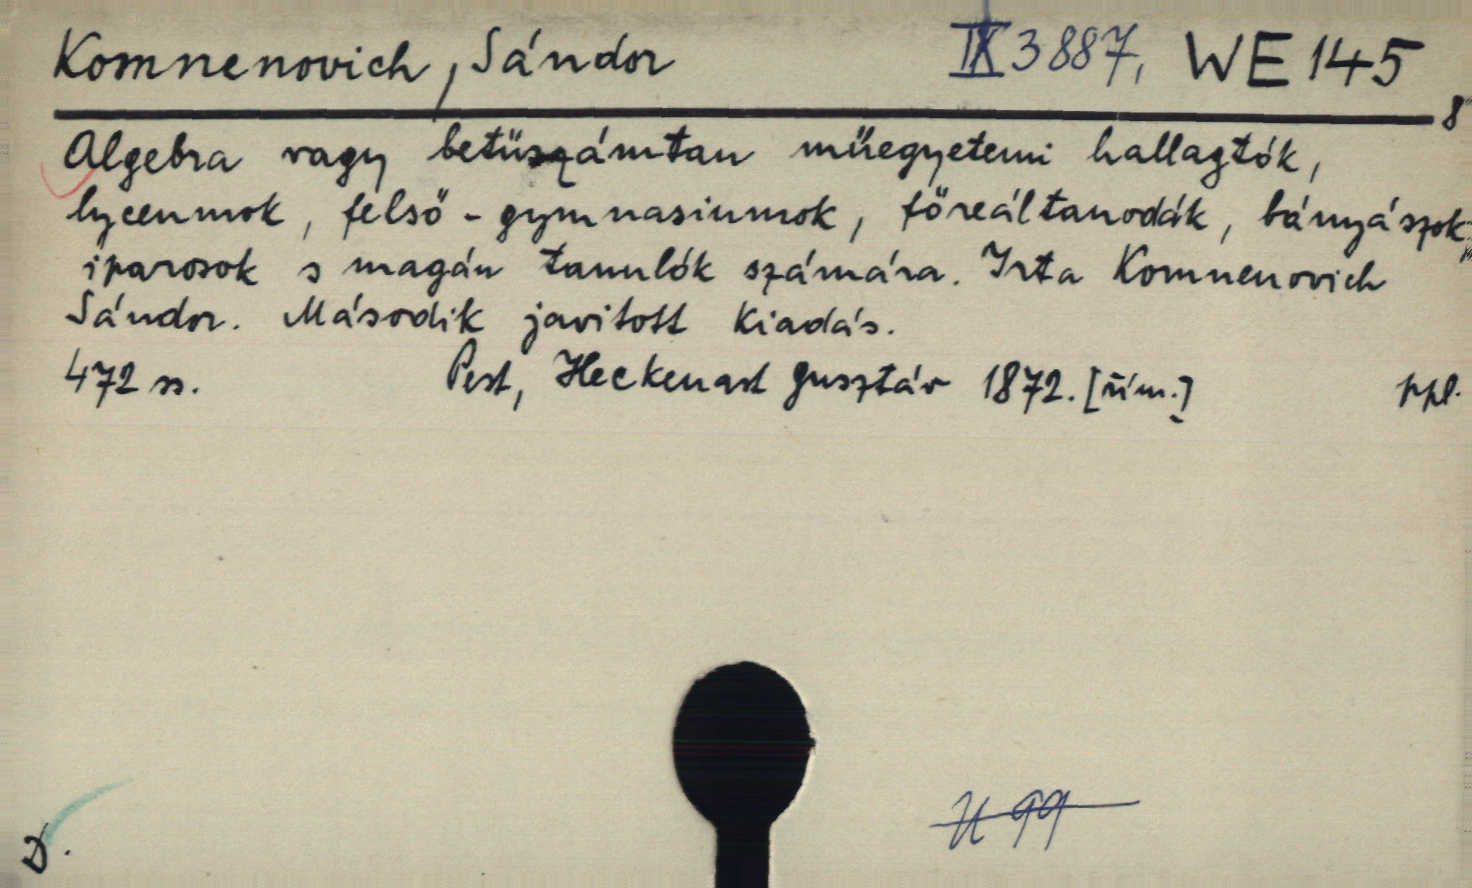 Komnenovich, Sándor IX 3887, WE 145
8
Algebra vagy betüszámtan müegyetemi hallagtók,
lyceumok, felső-gymnasiumok, főreáltanodák, bányászok,
iparosok s magán tanulók számára. Irta Komnenovich
Sándor. Második javitott kiadás.
472 ss. Pest, Heckenast Gusztáv 1872. [ny.] ppl.
U 99
D.